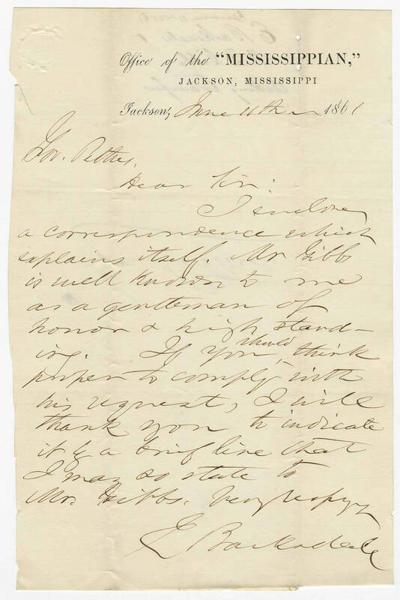 Office of the "MISSISSIPPIAN,"
JACKSON, MISSISSIPPI
Jackson, June 11th 1861
Gov. Pettus,
Dear Sir:
I enclose
a correspondence which
explains itself. Mr Gibbs
is well known to me
as a gentleman of
honor & high stand-
ing. If you should think
proper to comply with
his request, I will
thank you to indicate
it by a brief line that
I may so state to
Mr. Gibbs. Very respy
E Barksdale